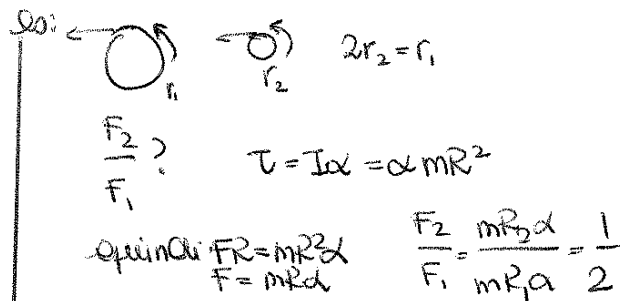 es:
r₁ r₂ 2r₂ = r₁
F₂/F₁ ? τ = Iα = αmR²
quindi FR = mR²α
F = mRα
F₂/F₁ = mR₂α/mR₁α = 1/2